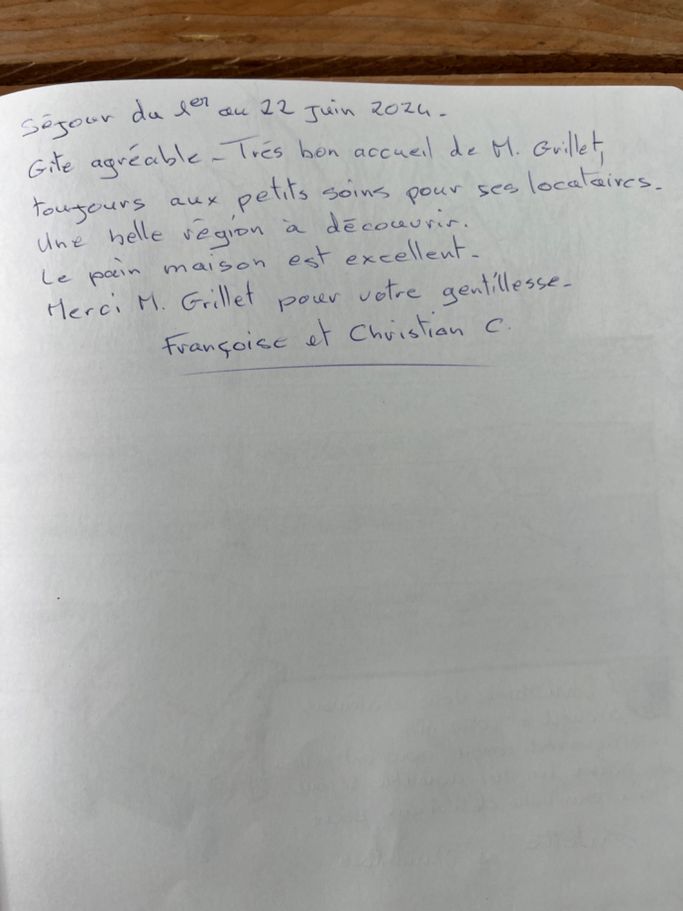 Séjour du 1er au 22 Juin 2024.
Gite agréable - Trés bon accueil de M. Grillet,
toujours aux petits soins pour ses locataires.
Une belle région à découvrir.
Le pain maison est excellent.
Merci M. Grillet pour votre gentillesse.
Françoise et Christian C.